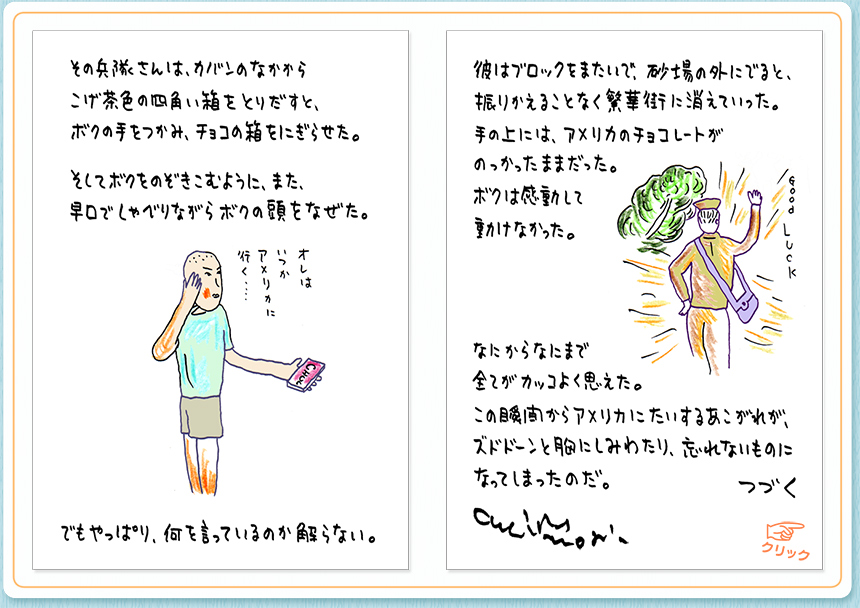 その兵隊さんは、カバンのなかから
こげ茶色の四角い箱をとりだすと、
ボクの手をつかみ、チョコの箱をにぎらせた。
そしてボクをのぞきこむように、また、
早口でしゃべりながらボクの頭をなぜた。
オレは
いつか
アメリカに
行く……
CHOC
でもやっぱり、何を言っているのか解らない。
彼はブロックをまたいで、砂場の外にでると、
振りかえることなく繁華街に消えていった。
手の上には、アメリカのチョコレートが
のっかったままだった。
ボクは感動して
動けなかった。
GOOD LUCK
なにからなにまで
全てがカッコよく思えた。
この瞬間からアメリカにたいするあこがれが、
ズドドーンと胸にしみわたり、忘れないものに
なってしまったのだ。
つづく
クリック